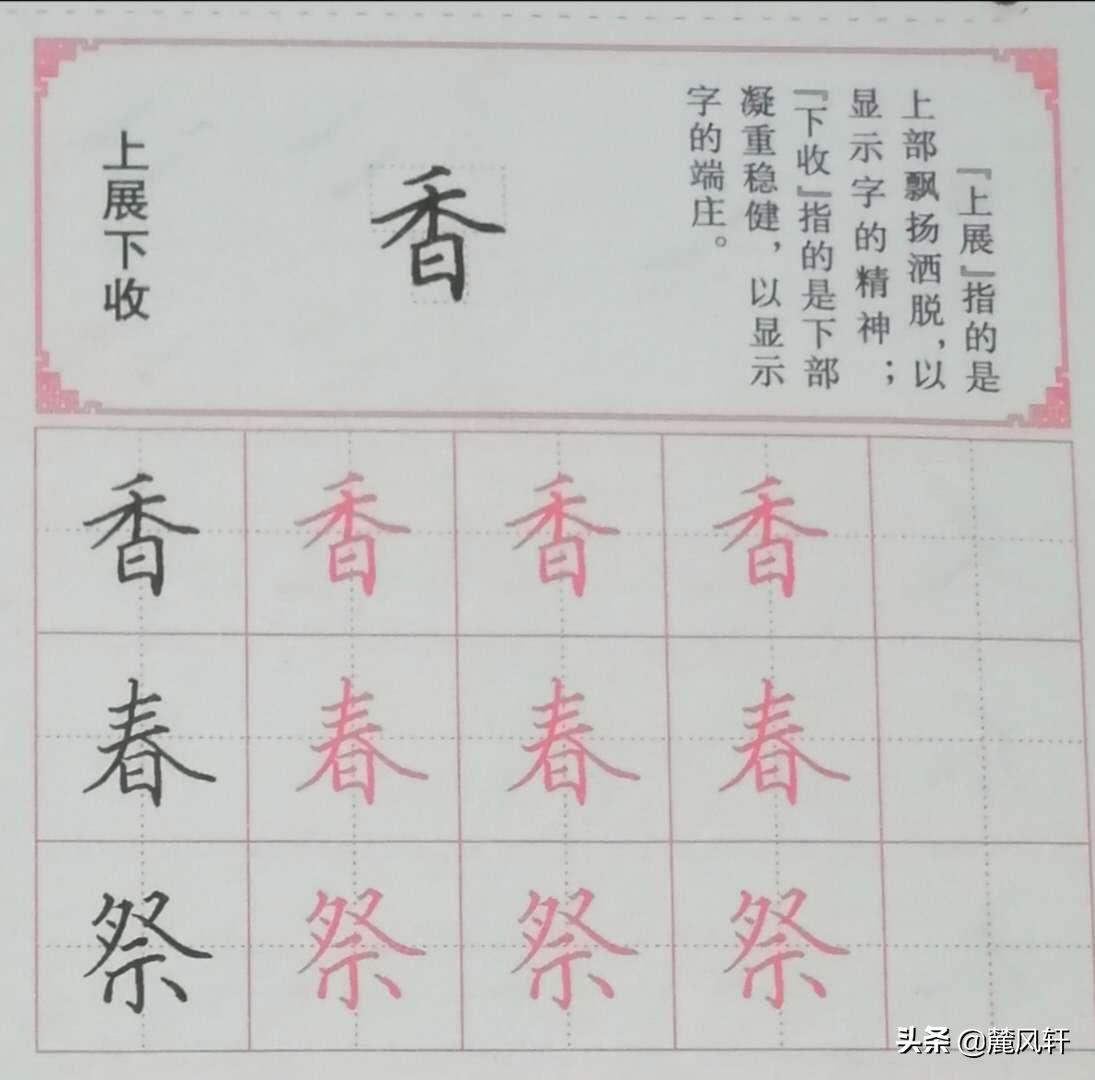 『上展』指的是
上部飘扬洒脱，以
显示字的精神；
『下收』指的是下部
凝重稳健，以显示
字的端庄。
香
上展下收
香 香 香 香
春 春 春 春
祭 祭 祭 祭
头条 @麓风轩